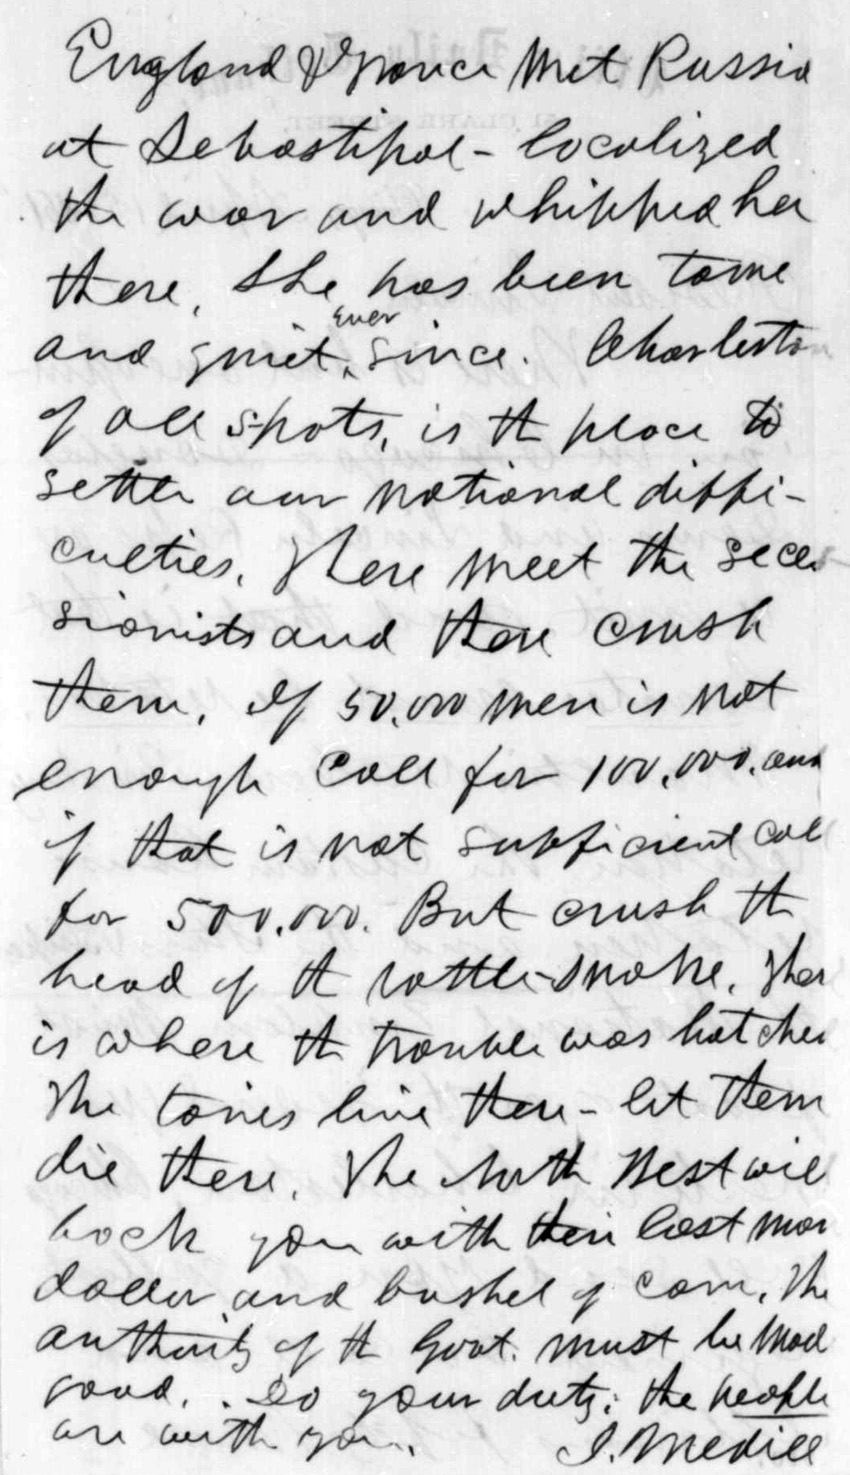 England & France met Russia
at Sebastipol - localized
the war and whipped her
there, She has been tame
and quiet ever since. Charleston
of all spots, is th place to
settle our national diffi-
culties. There meet the seces
sionists and there crush
them. If 50,000 men is not
enough call for 100,000, and
if that is not sufficient call
for 500,000. But crush th
head of th rattle-snake. Ther
is where th trouble was hatched
The tories live there - let them
die there. The North West will
back you with their last man
dollar and bushel of corn. The
authority of th Govt. must be mad
good. Do your duty; the people
are with you. J. Medill